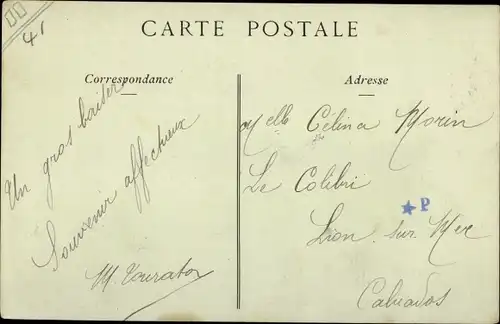 41
CARTE POSTALE
Correspondance
Un gros baiser
Souvenir affectueux
Adresse
Melle Célina Morin
Le Colibri
Lion sur Mer
Calvados
P